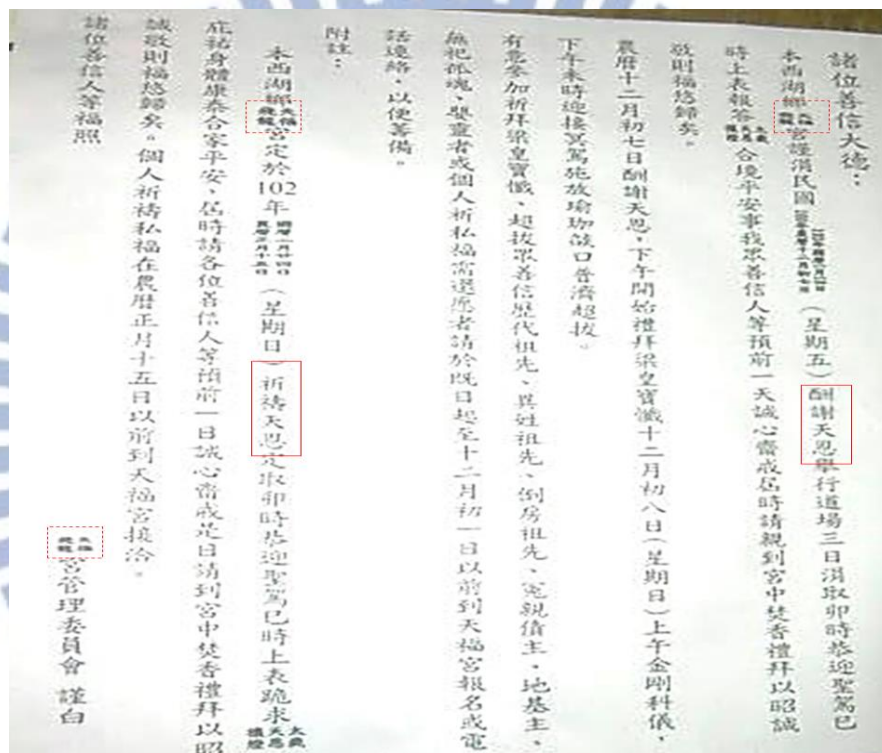 諸位善信大德：
本西湖鄉天福飛龍宮謹涓民國（星期五）酬謝天恩舉行道場三日涓取卯時恭迎聖駕巳
時上表報答太歲天恩植燈合境平安事我眾善信人等預前一天誠心齋戒屆時請親到宮中焚香禮拜以昭誠
敬則福悠歸矣。
農曆十二月初七日酬謝天恩，下午開始禮拜梁皇寶懺十二月初八日（星期日）上午金剛科儀，
下午未時迎接冥駕施放瑜珈燄口普濟超拔。
有意參加祈拜梁皇寶懺、超拔眾善信歷代祖先、異姓祖先、倒房祖先、冤親債主、地基主、
無祀孤魂、嬰靈者或個人祈私福需還愿者請於既日起至十二月初一日以前到天福宮報名或電
話連絡，以便籌備。
附註：
本西湖鄉天福飛龍宮定於102年國曆二月廿四日農曆正月十五日（星期日）祈禱天恩定取卯時恭迎聖駕巳時上表跪求太歲天恩植燈
庇祐身體康泰合家平安、屆時請各位善信人等預前一日誠心齋戒是日請到宮中焚香禮拜以昭
誠敬則福悠歸矣。個人祈禱私福在農曆正月十五日以前到天福宮接洽。
諸位善信人等福照
天福飛龍宮管理委員會 謹白